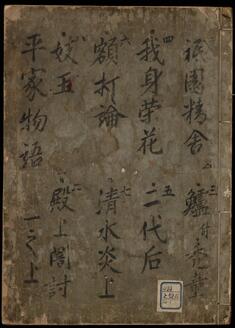 祇園精舎 三鱸付禿童
四我身栄花 五二代后
六額打論 七清水炎上
妓王 二殿上闇討
平家物語 一之上